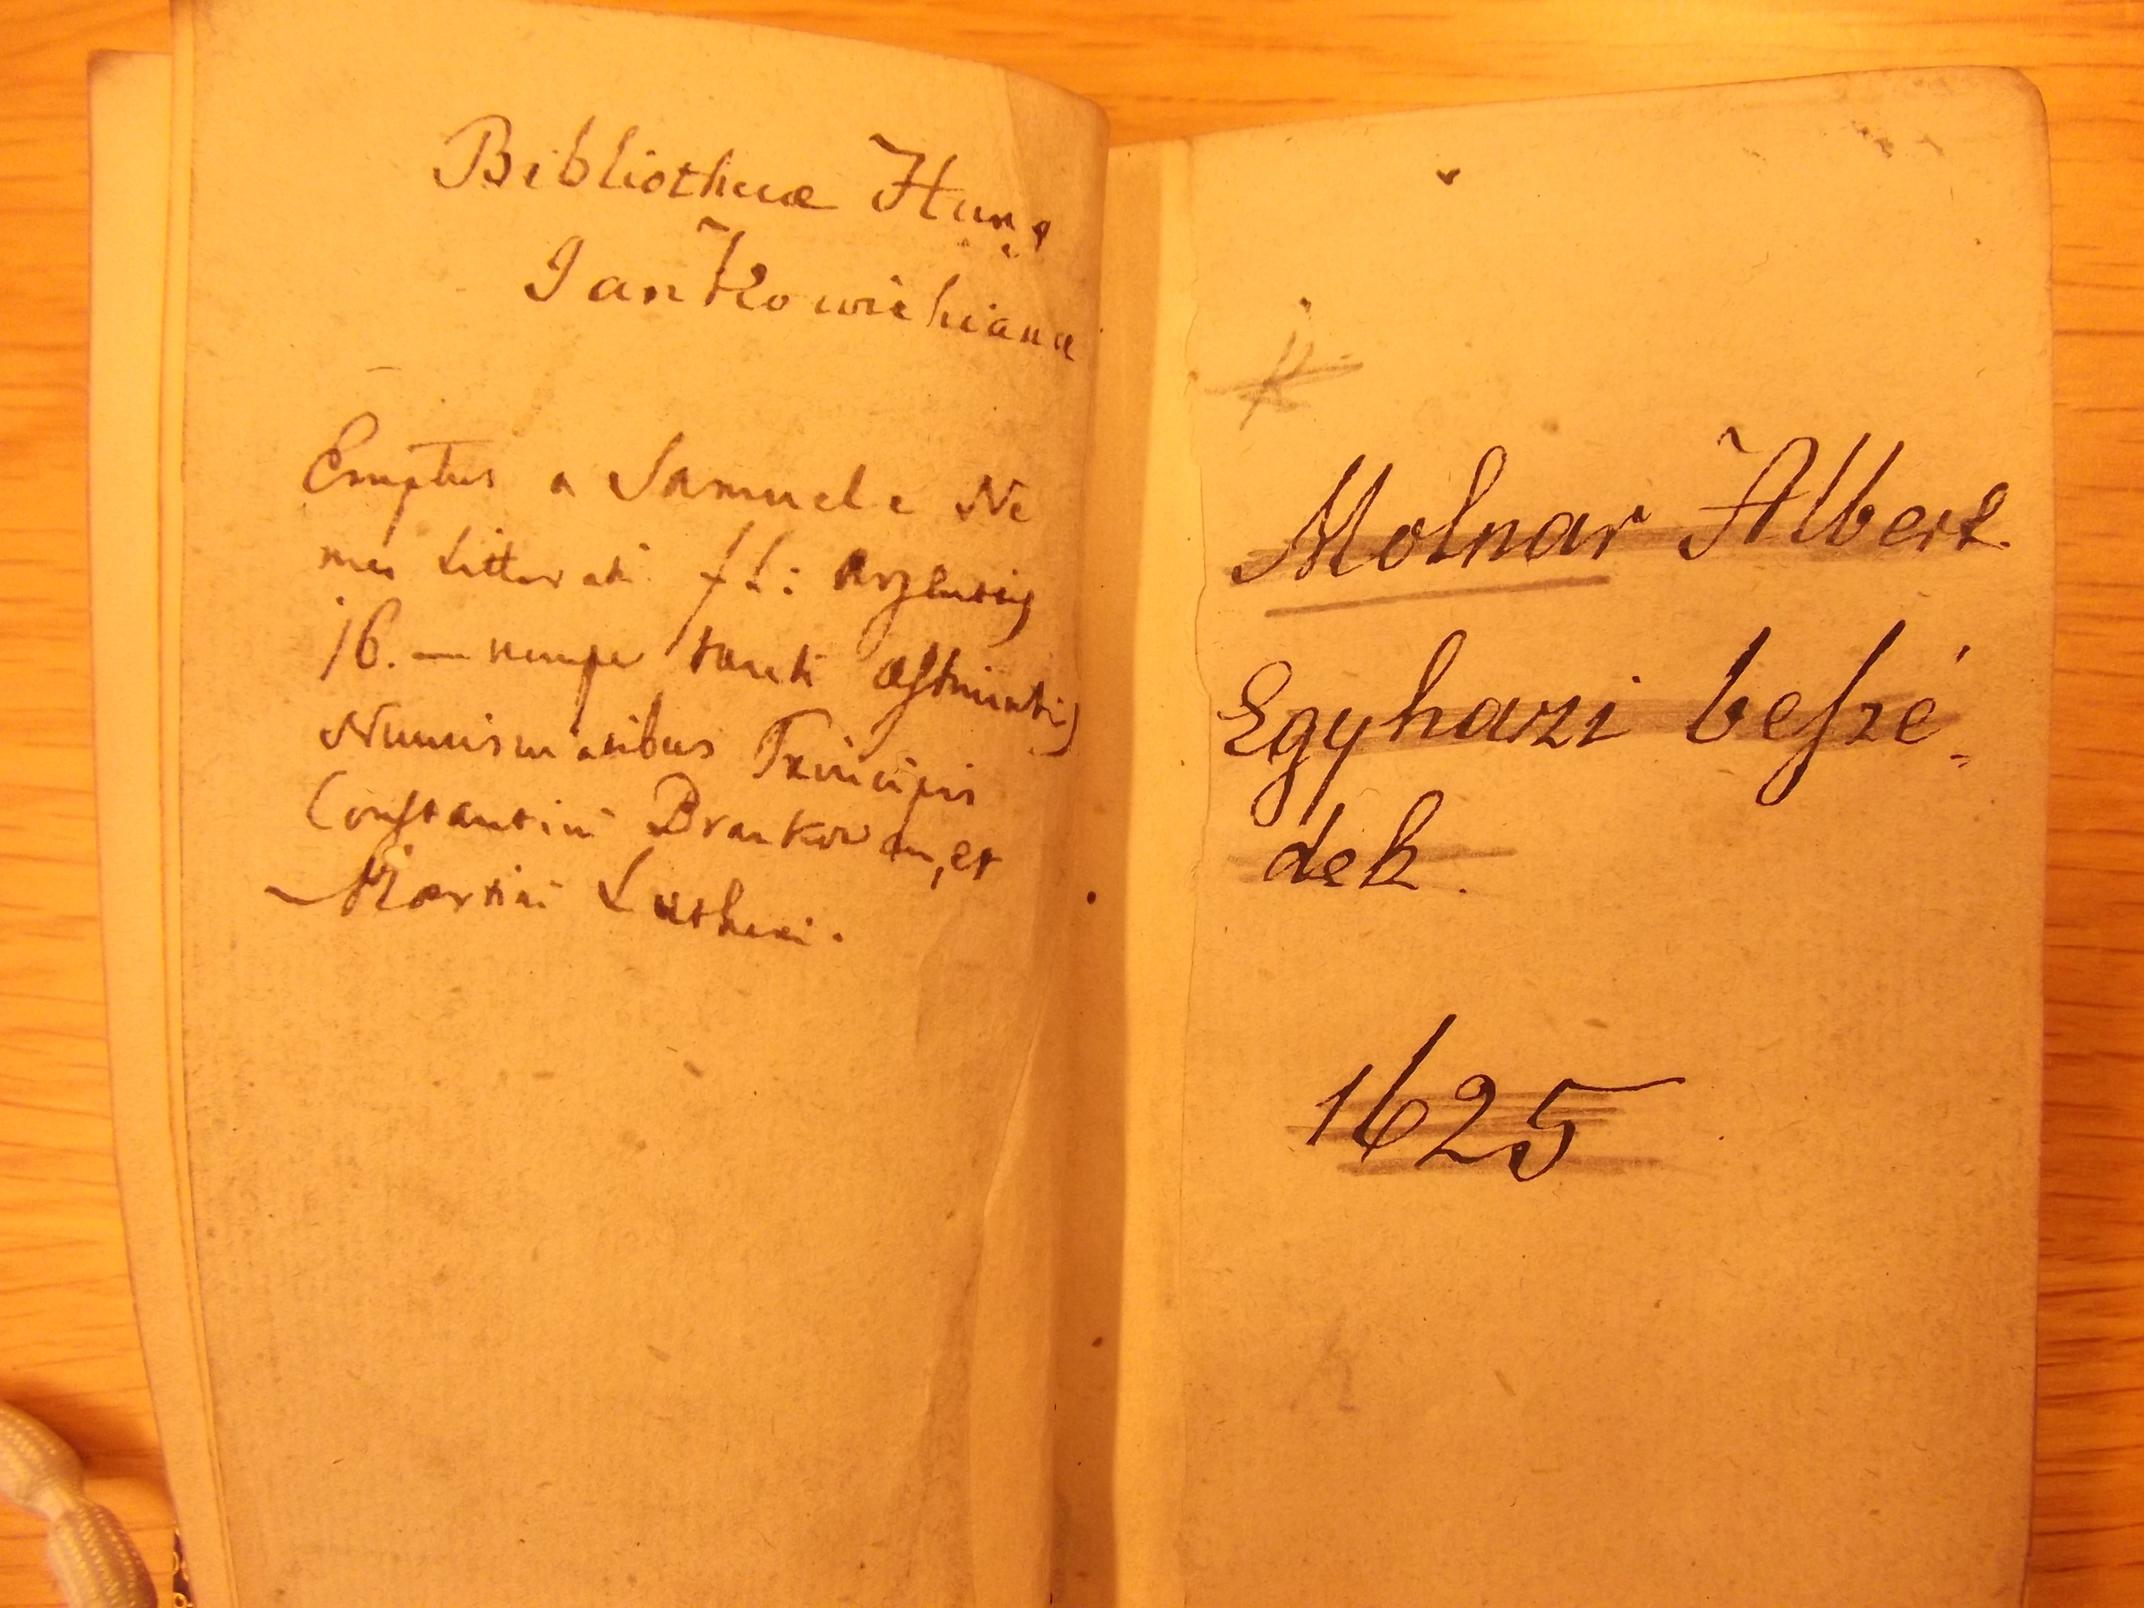 Bibliothecæ Hung
Jankowichiana
Emptus a Samuele Ne
mes Litterati fl: argenteis
16. — nempe tanti æstimatis
Numismatibus Principis
Constantini Brankovan, et
Martini Lutheri.
Molnar Albert
Egyhazi beszé-
dek.
1625